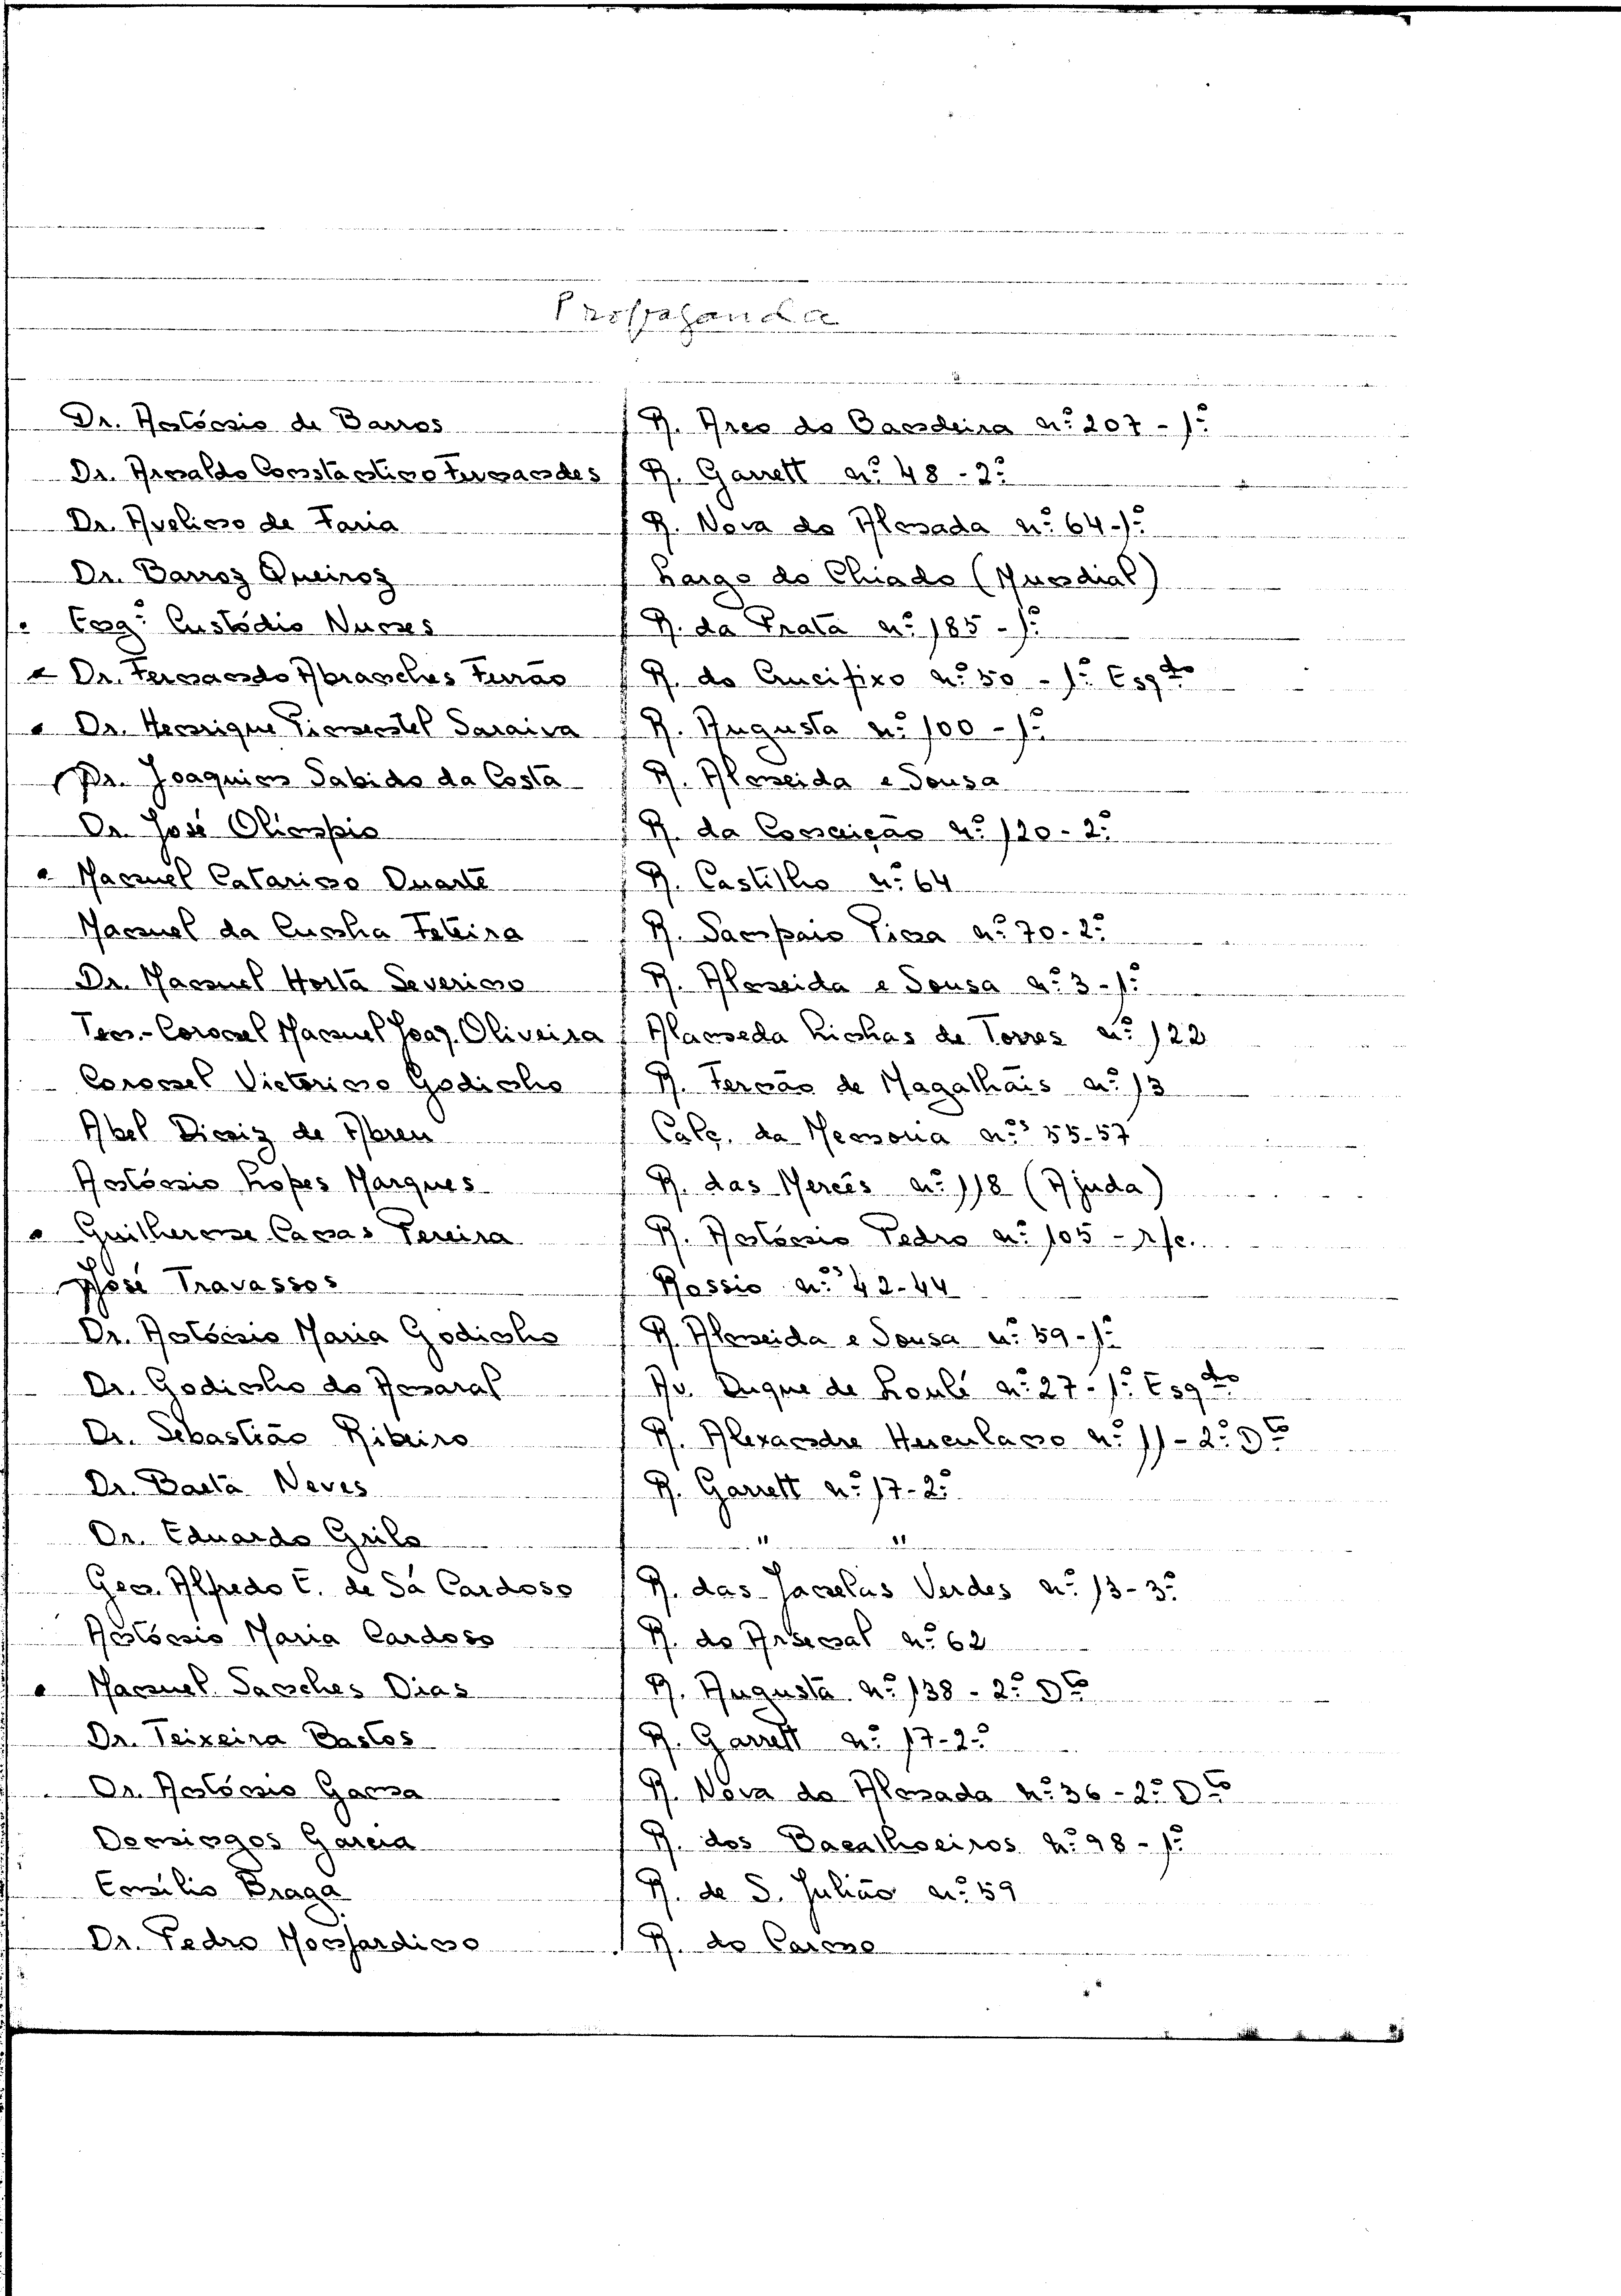 Propaganda
Dr. António de Barros R. Arco do Bandeira n.º 207 - 1.º
Dr. Arnaldo Constantino Fernandes R. Garrett n.º 48 - 2.º
Dr. Avelino de Faria R. Nova do Almada n.º 64 - 1.º
Dr. Barros Queiroz Largo do Chiado (Mundial)
Eng.º Custódio Nunes R. da Prata n.º 185 - 1.º
Dr. Fernando Abranches Furrão R. do Crucifixo n.º 50 - 1.º Esq.do
Dr. Henrique Pimentel Saraiva R. Augusta n.º 100 - 1.º
Dr. Joaquim Sabido da Costa R. Almeida e Sousa
Dr. José Olimpio R. da Conceição n.º 120 - 2.º
Manuel Catarino Duarte R. Castilho n.º 64
Manuel da Cunha Teleira R. Sampaio Pina n.º 70 - 2.º
Dr. Manuel Horta Severino R. Almeida e Sousa n.º 3 - 1.º
Ten.-Coronel Manuel Joaq. Oliveira Alameda Linhas de Torres n.º 122
Coronel Victorino Godinho R. Fernão de Magalhãis n.º 13
Abel Diniz de Abreu Calç. da n.os 55-57
António Lopes Marques R. das Mercês n.º 118 (Ajuda)
Guilherme Canas Pereira R. António Pedro n.º 105 - r/c.
José Travassos Rossio n.os 42-44
Dr. António Maria Godinho R. Almeida e Sousa n.º 59 - 1.º
Dr. Godinho do Amaral Av. Duque de Loulé n.º 27 - 1.º Esq.do
Dr. Sebastião Ribeiro R. Alexandre Herculano n.º 11 - 2.º D.to
Dr. Baeta Neves R. Garrett n.º 17 - 2.º
Dr. Eduardo Grilo " "
Gen. Alfredo E. de Sá Cardoso R. das Janelas Verdes n.º 13 - 3.º
António Maria Cardoso R. do Arsenal n.º 62
Manuel Sanches Dias R. Augusta n.º 138 - 2.º D.to
Dr. Teixeira Bastos R. Garrett n.º 17 - 2.º
Dr. António Gama R. Nova do Almada n.º 36 - 2.º D.to
Domingos Garcia R. dos Bacalhoeiros n.º 98 - 1.º
Emílio Braga R. de S. Julião n.º 59
Dr. Pedro Monjardino R. do Carmo